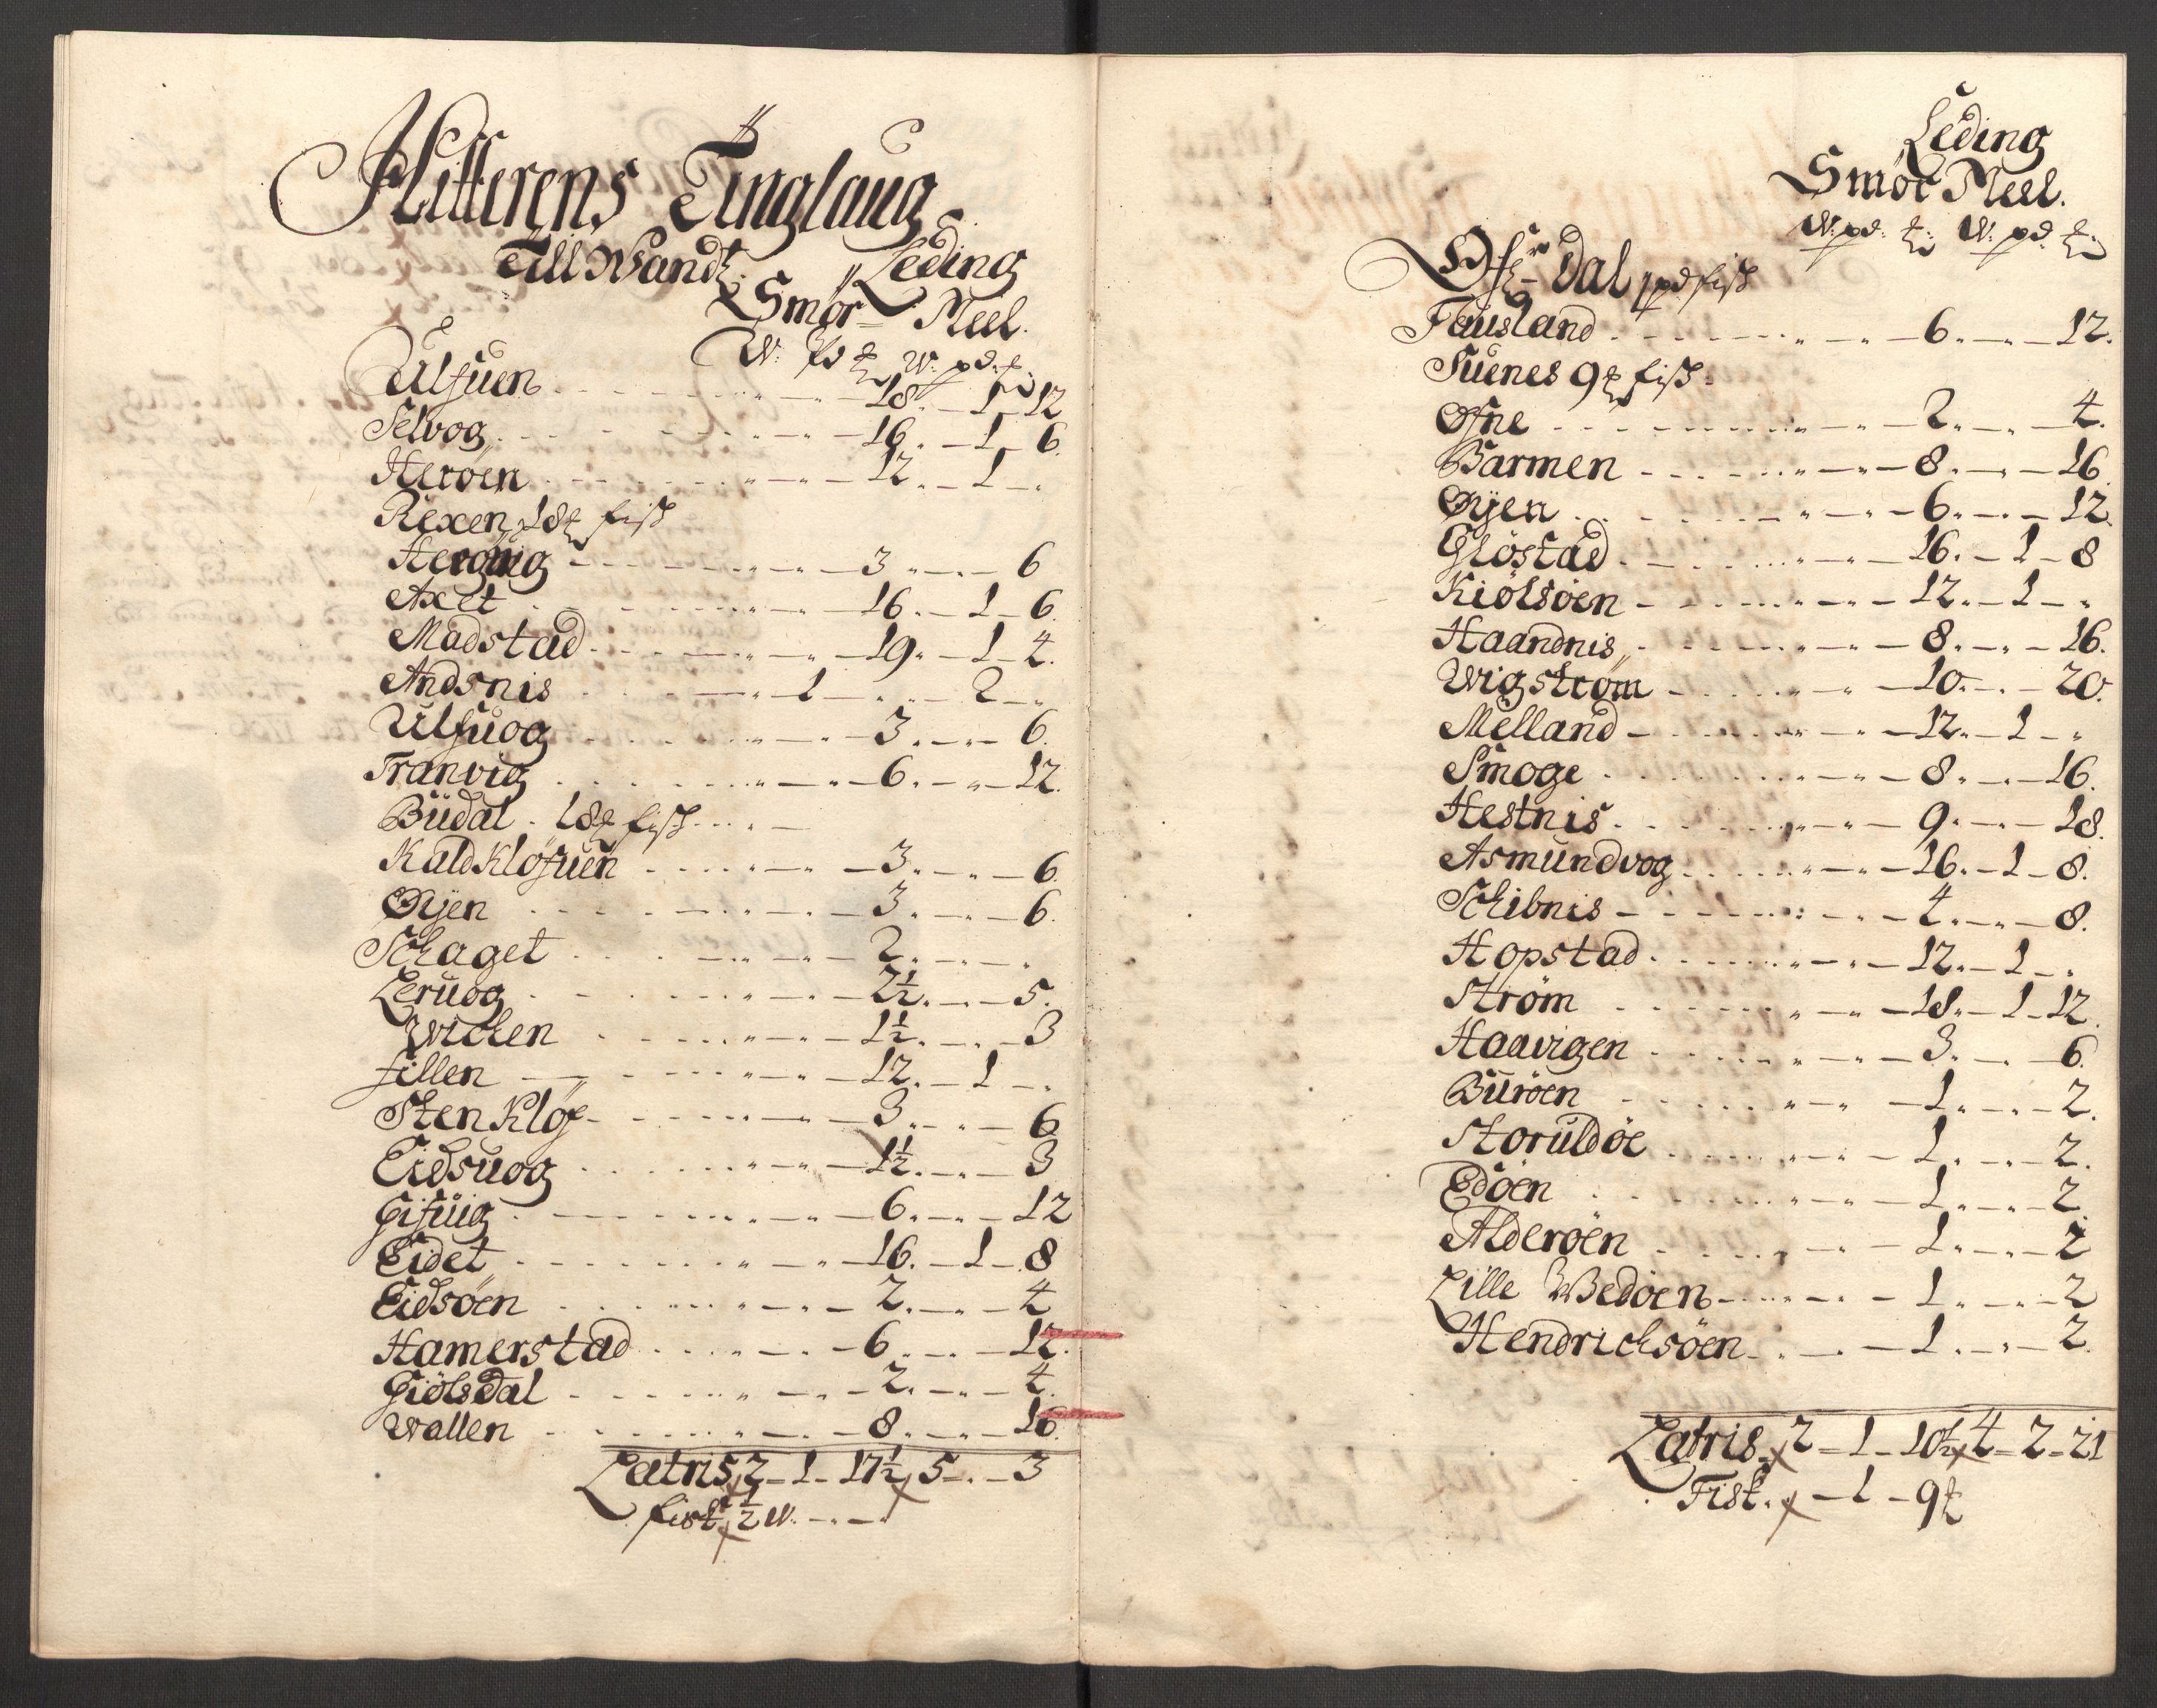 Hitterens Tinglaug
Till Wandz. Leding
Smør Meel.
W: pd ℔ W: pd: ℔
Ulfuen - - - 18 - 1 - 12
Selvog - - - 16 - 1 - 6.
Herøen - - - 12 - 1 -
Rexen 18 ℔ fisk
Hergug - - - 3 - - 6
Axet - - - 16 - 1 - 6.
Madstad - - - 19 - 1 - 4.
Andsnis - - - 1 - - 2 -
Ulfuog - - - 3 - - 6.
Tranvig - - - 6 - - 12.
Büdal . 18 ℔ fisk - - -
Kaldkløfuen - - - 3 - - 6.
Øyen - - - 3 - - 6.
Schaget - - - 2 - -
Leruog - - - 2½ - - 5.
Wichen - - - 1½ - - 3
fillen - - - 12 - 1 -
Stenkløf - - - 3 - - 6
Eidsuog - - - 1½ - - 3
Gifuig - - - 6 - - 12
Eidet - - - 16 - 1 - 8
Eidsøen - - - 2 - - 4
Hamerstad - - - 6 - - 12.
Giølsdal - - - 2 - - 4.
Wallen - - - 8 - - 16
Latris 2 - 1 - 17½ 5 - - 3
fisk ½ W. - - -
Leding
Smør Meel.
W: pd: ℔: W: pd: ℔:
Øfr Dal 1 pd fisk
Fausland - - - 6 - - 12.
Suenes 9 ℔ fisk -
Øfne - - - 2 - - 4.
Barmen - - - 8 - - 16
Øyen - - - 6 - - 12.
Gløstad - - - 16 - 1 - 8
Kiølsøen - - - 12 - 1 -
Haandnis - - - 8 - - 16.
Wigstrøm - - - 10 - - 20.
Melland - - - 12 - 1 -
Smoge - - - 8 - - 16.
Hestnis - - - 9 - - 18.
Asmundvog - - - 16 - 1 - 8.
Schibnis - - - 4 - - 8.
Hopstad - - - 12 - 1 -
Strøm - - - 18 - 1 - 12.
Haavigen - - - 3 - - 6.
Burøen - - - 1 - - 2.
Storuldøe - - - 1 - - 2.
Edøen - - - 1 - - 2.
Alderøen - - - 1 - - 2
Lille Wedøen - - - 1 - - 2
Hendrichsøen - - - 1 - - 2.
Latris 2 - 1 - 10½ 4 - 2 - 21
Fisk. - 1 - 9 ℔